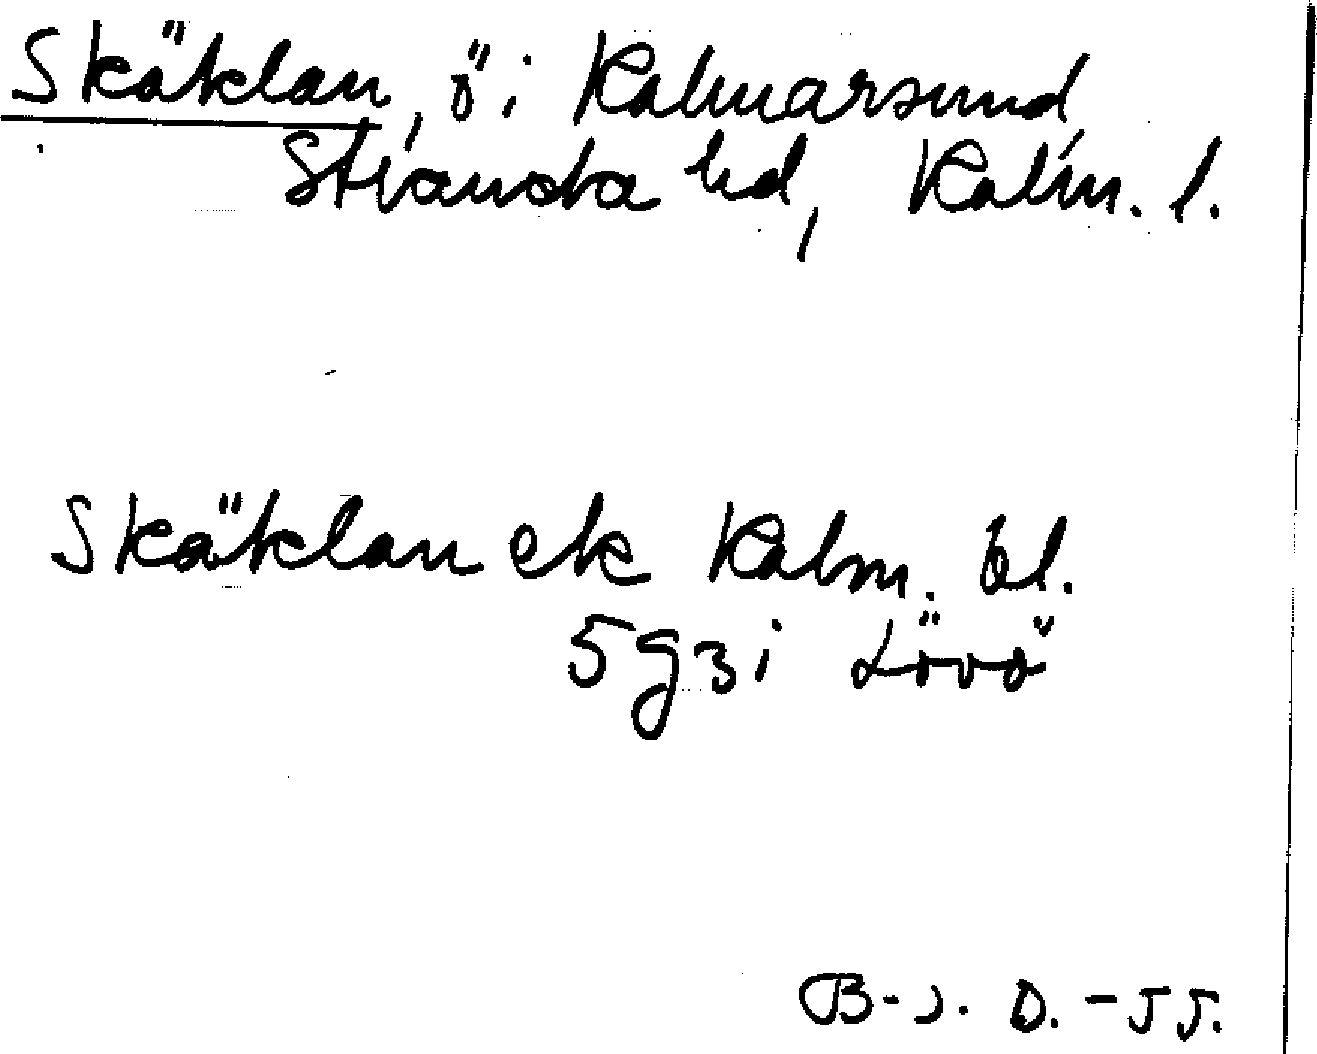 Skäklan, ö i Kalmarsund,
Stranda hd, Kalm. l.
Skäklan ek Kalm. bl.
5g3i Lövö
B-J. D. -55.